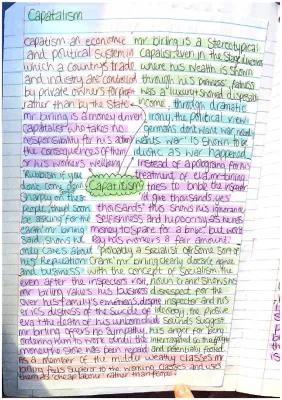 Capatalism
capatism an economic mr birling is a stereotypical
and political system in capalist, even in the stage directions
which a country's trade where his wealth is shown
and industry are controlled through his business, patries
by private owners for profit was a luxury
rather than by the state income, through dramatic
mr birling is a money driven irony, the political view
capatalist who takes no germans don't want war,
responsability for his action war is shown to be
the consequences of them as war happened
or his workers wellbeing instead of apologising for his
"Rubbish if you treatment of eva mr birling
don't come down Capatitism tries to bribe the inspector
sharply on these id give thousands, yes
people, they'd soon thousands" this shows his ignorance
be asking for the selfishness and hypocrisy as he has
earth" mr birling money to spare for a bribe but won't
said, shows he pay his workers a fair amount.
only cares about "probably a socialist or some sort of
his reputation crank" mr birling clearly doesn't agree
and business with the concept of socialism, the
even after the inspectors visit, noun crank shows
mr birling values his business disrespect for the
over his family's emotions, despite inspector and his
eric's distress of the suicide of ideology, the
eva + the death of his unborn child sounds suggest
mr birling offers no sympathy, his anger for being
ordering him to more and potentially fooled
as a member of the middle wealthy classes mr
birling feels superior to the working classes and uses
them as cheap labour rather than people.